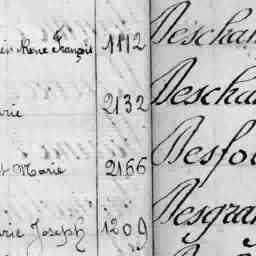 René François 1112 Descham
2132 Descha
Marie 2166 Desfo
Joseph 1209 Desgra